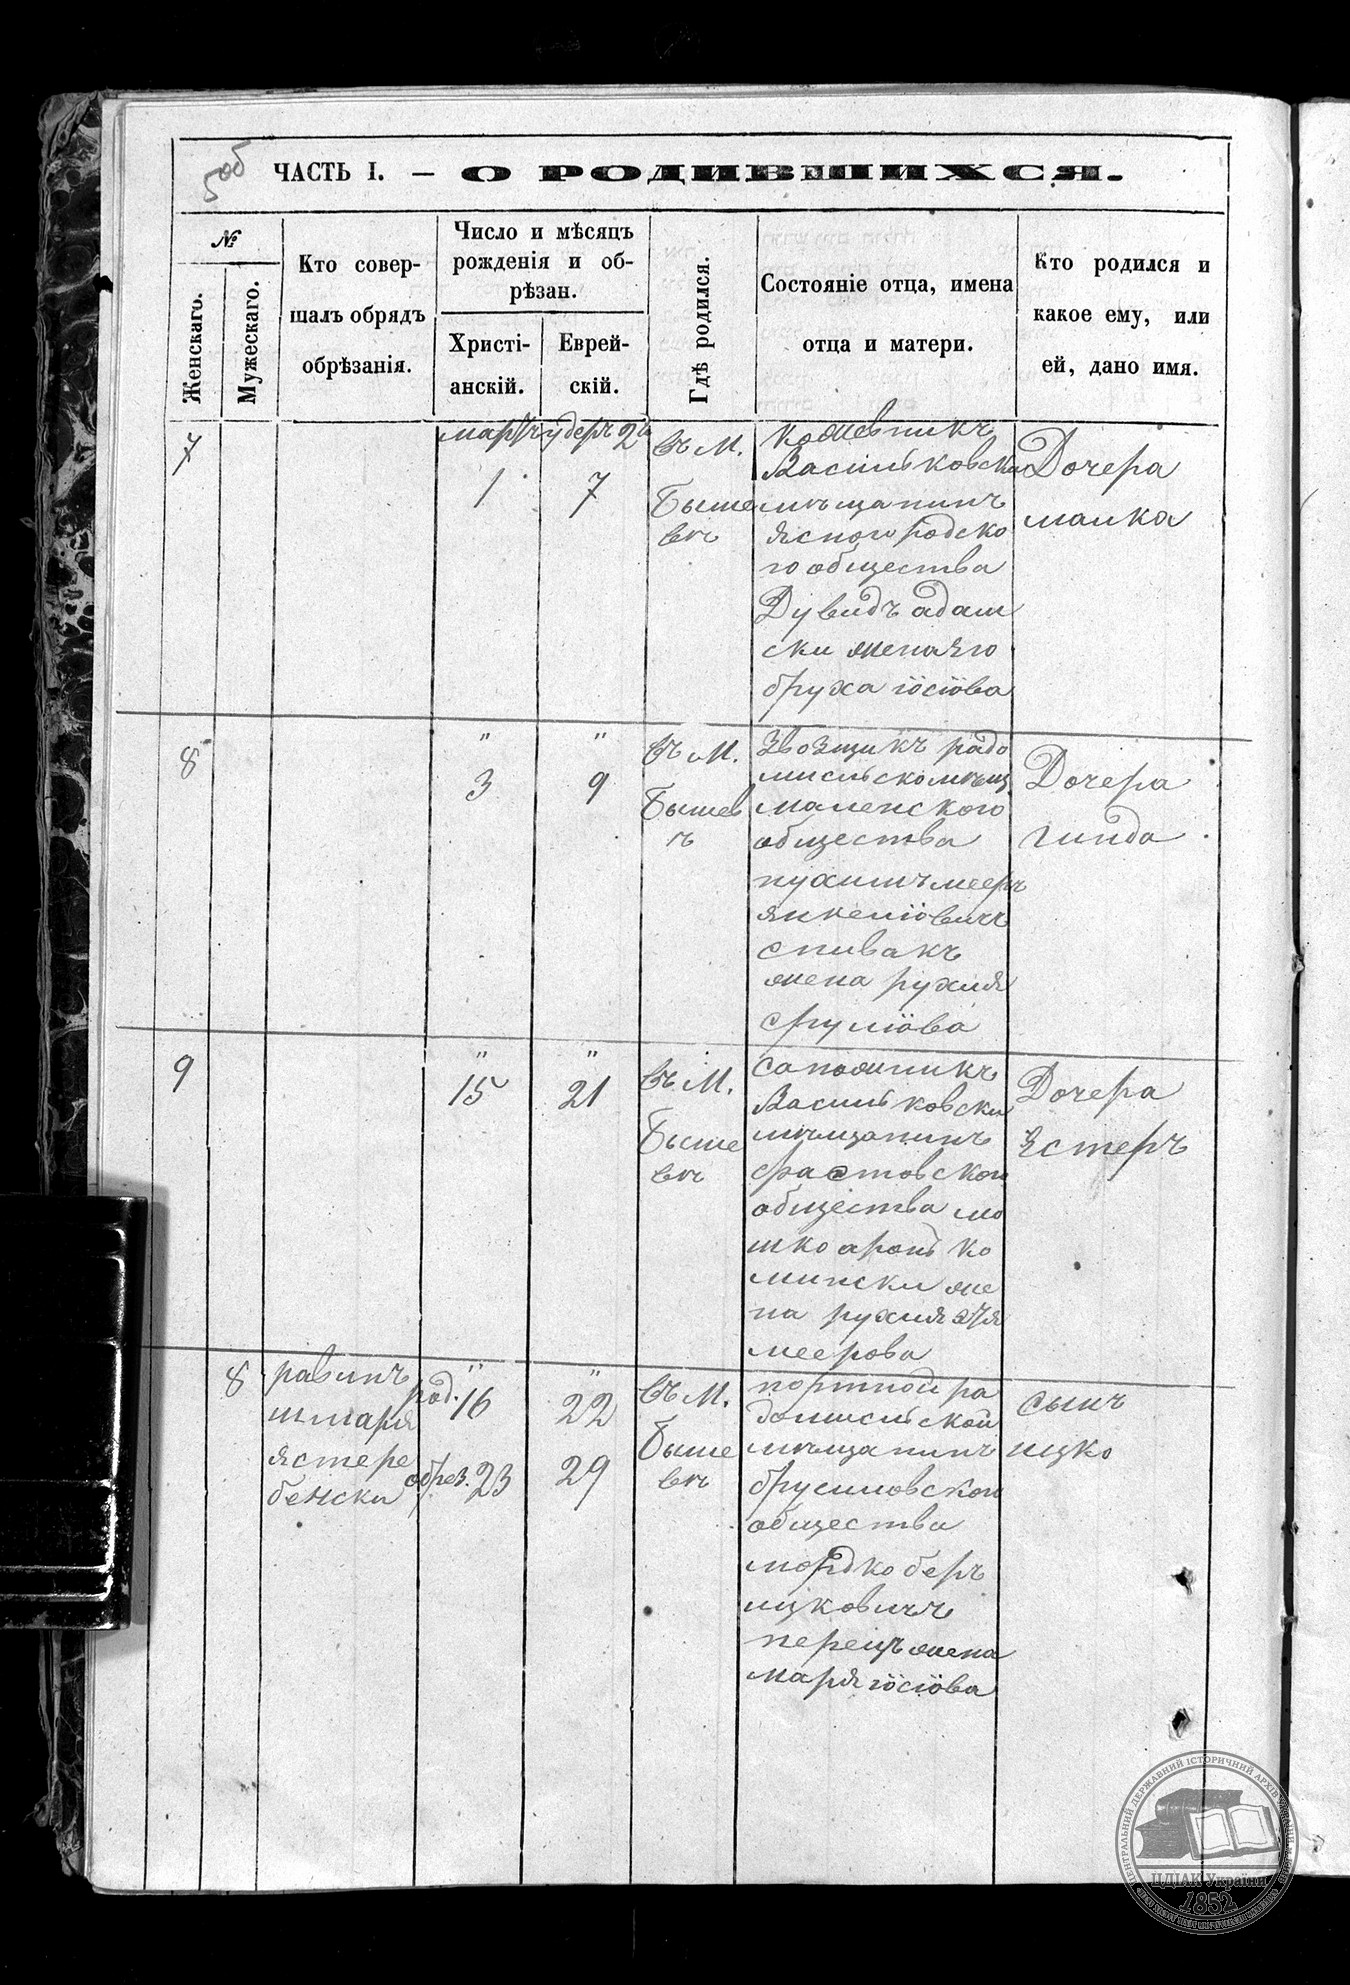 5об
ЧАСТЬ I. — О РОДИВШИХСЯ.
№
Женскаго.
Мужескаго.
Кто совер-
шалъ обрядъ
обрѣзанія.
Число и мѣсяцъ
рожденія и об-
рѣзан.
Христі-
анскій.
Еврей-
скій.
Гдѣ родился.
Состояніе отца, имена
отца и матери.
Кто родился и
какое ему, или
ей, дано имя.
7
мартъ
1
удеръ 2й
7
въ М.
Быше
въ
Васильковски
мѣщанинъ
ясногородско
го общества
Дувидъ адам
ски жена его
бруха іосіова
Дочера
малка
8
"
3
"
9
въ М.
Бышев
ъ
звозщикъ радо
мисльско мѣщ
маленского
общества
нухимъ мееръ
янкеліовичъ
спивакъ
жена рухля
сруліова
Дочера
гинда
9
"
15
"
21
въ М.
Быше
въ
сапожникъ
Васильковски
мѣщанинъ
фастовского
общества мо
шко аронъ ко
мински же
на рухля
меерова
Дочера
Эстеръ
8
равинъ
шмаря
ястере
бенски
"
род. 16
обрез. 23
"
22
29
въ М.
Быше
въ
портной ра
домисльской
мѣщанинъ
брусиловского
общества
мордко беръ
ицковичъ
перецъ жена
маря іосіова
сынъ
ицко
ЦЕНТРАЛЬНИЙ ДЕРЖАВНИЙ ІСТОРИЧНИЙ АРХІВ УКРАЇНИ, М. КИЇВ
ЦДІАК України
1852